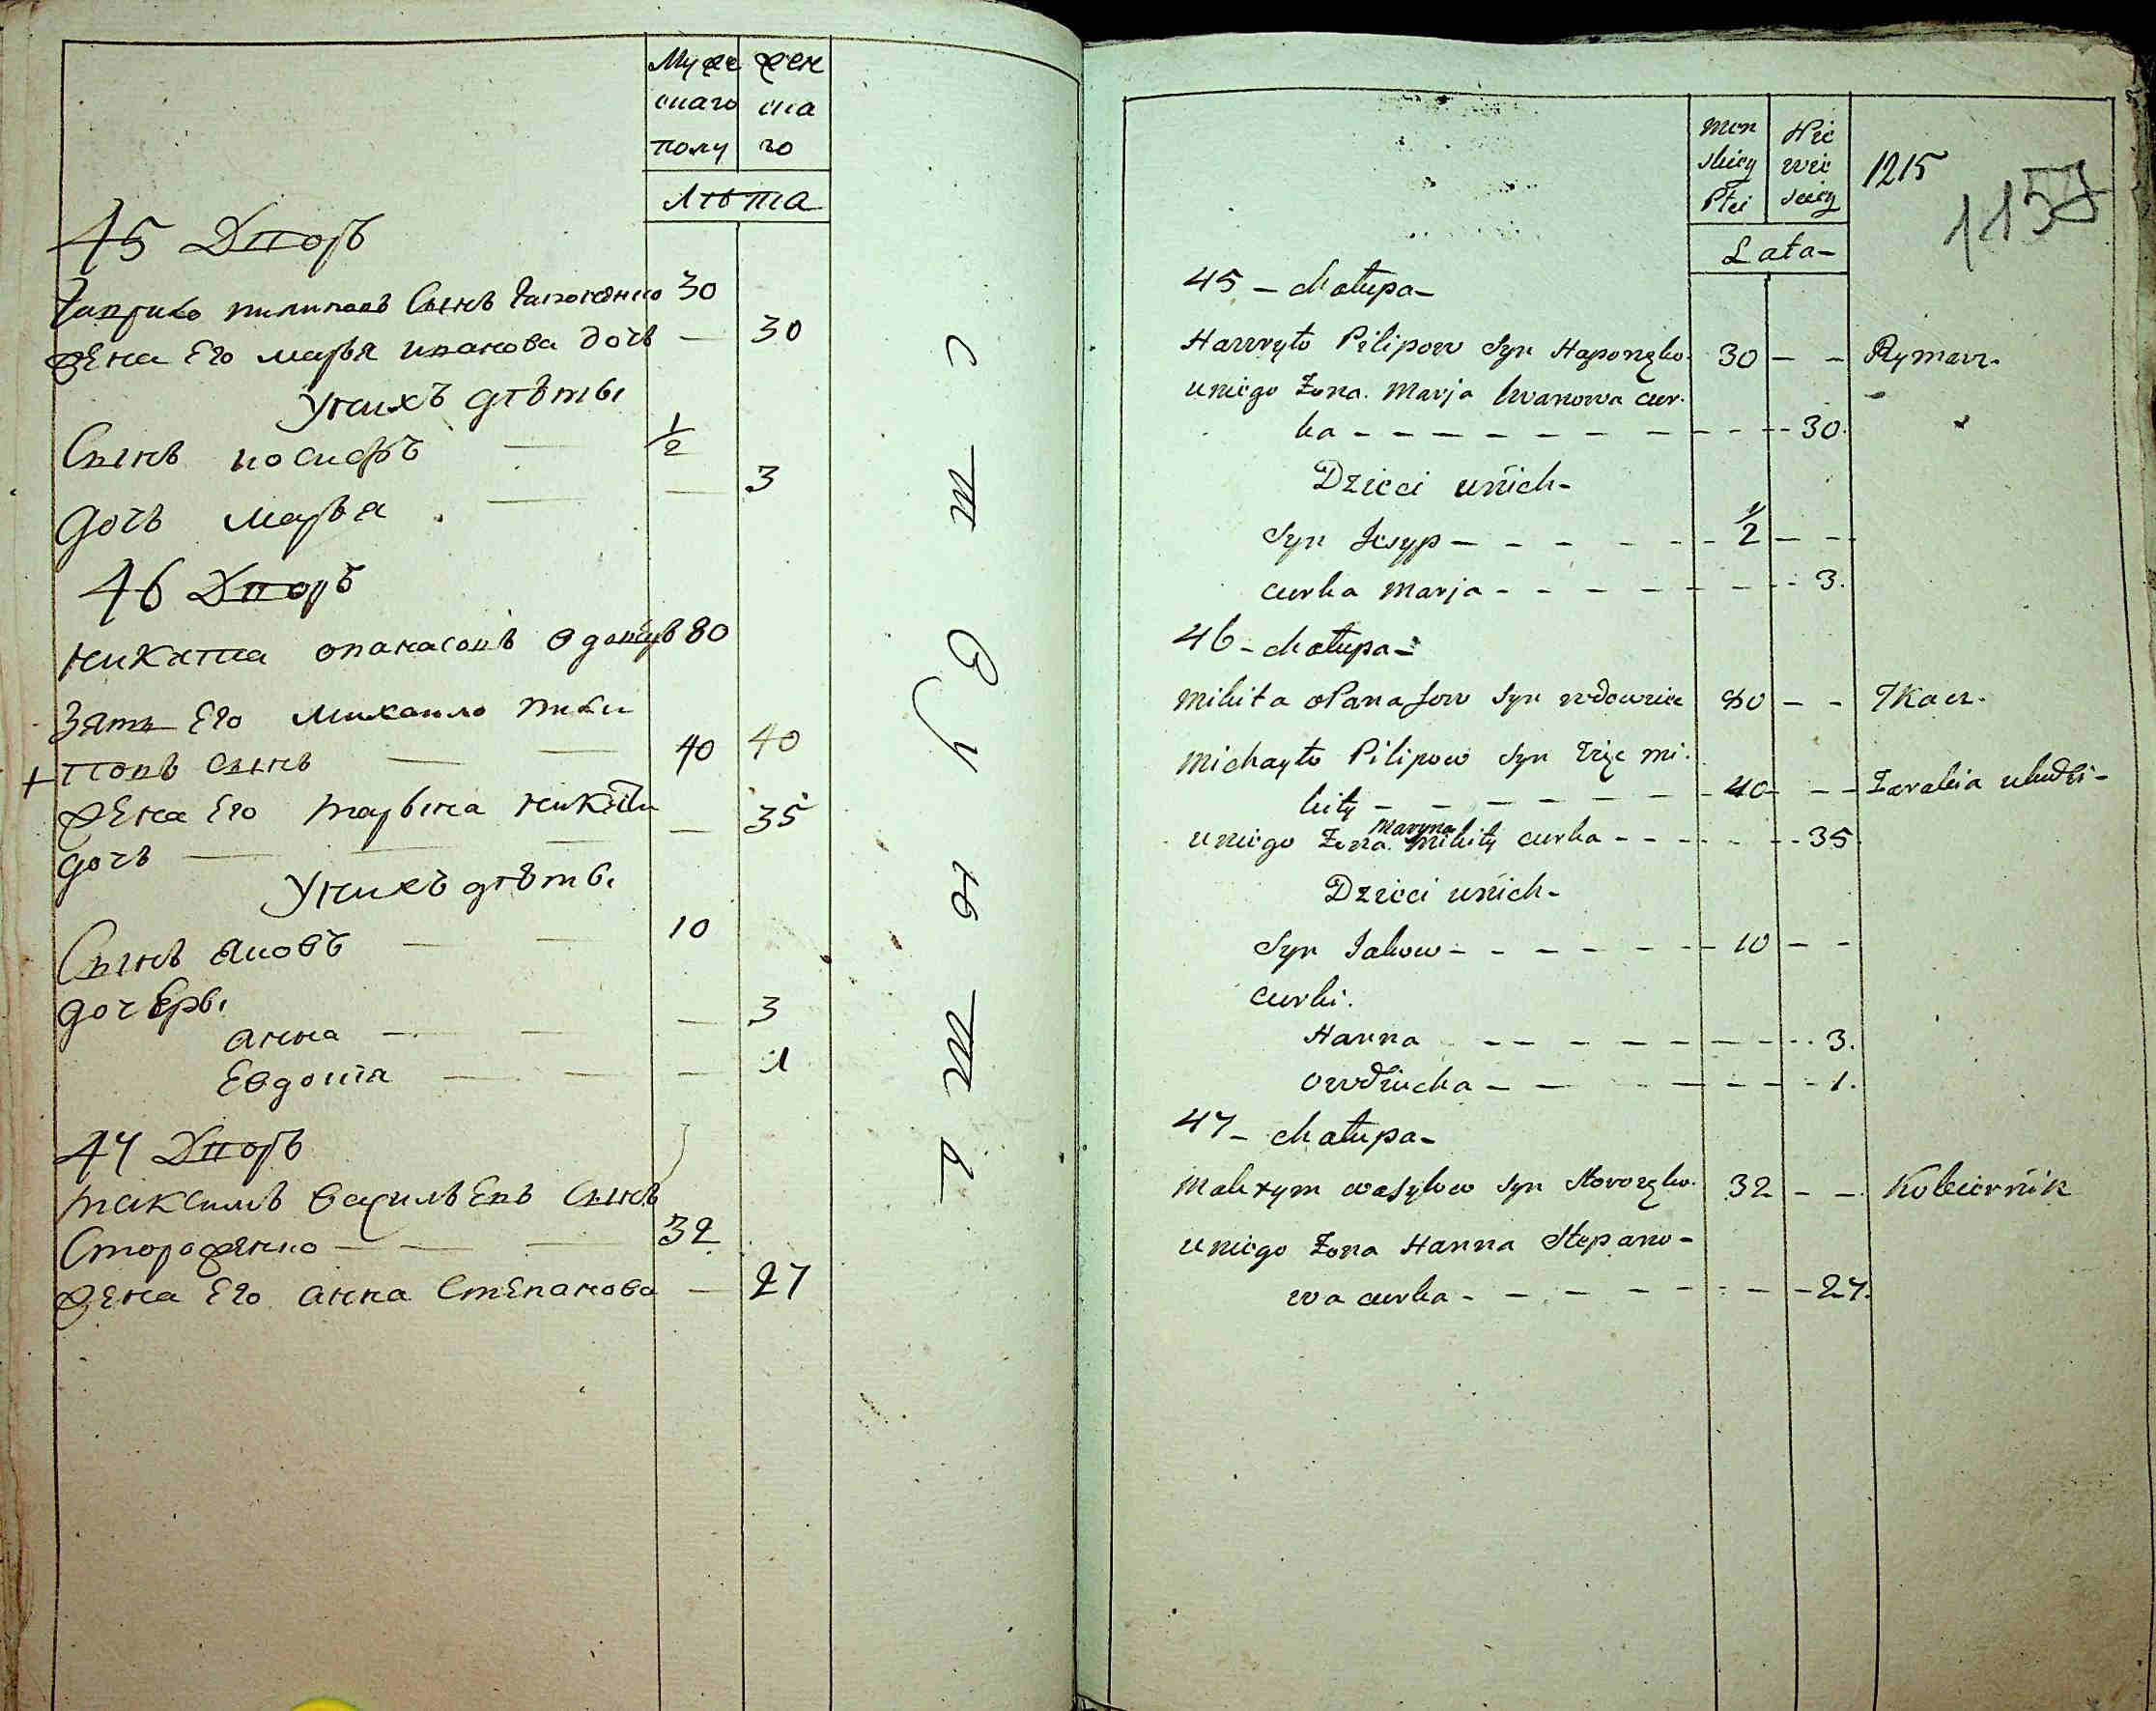 Мужескаго полу
Женскаго
Лѣта
45 Дворъ
Гаврило пилиповъ Сынъ Гапоненко 30
жена Его марья иванова дочь — 30
Унихъ дѣты
Сынъ иосифъ — 1/2
дочь марья — — 3
46 Дворъ
никита опанасовъ вдовецъ 80
Зять Его михаило пили
+ повъ сынъ — — 40 40
жена Его марына никиты — 35
дочь — — —
Унихъ дѣты
Сынъ яковъ — — 10
дочеры
анна — — — 3
Евдокия — — — 1
47 Дворъ
максимъ васильевъ сынъ
Стороженко — — — 32
жена Его анна Степанова — 27
Men
skiey
Płci
Nie
wie
sciey
1215
1157
Lata —
45 — chałupa —
Hawryło Pilipow Syn Haponęko. 30 — — Rymarz.
uniego Żona. Marja Iwanowa cur.
ka — — — — — — — — — 30.
Dzieci unich —
Syn Josyp — — — — — 1/2 — —
curka Marja — — — — — — 3.
46 — chałupa —
Mikita oPanasow Syn wdowiec 80 — — Tkacz.
Michayło Pilipow Syn Zięć Mi.
kity — — — — — — — 40 — — Zarabia uludzi —
uniego Żona Maryna Mikity curka — — — — — 35
Dzieci unich —
Syn Jakow — — — — — 10 — —
curki.
Hanna — — — — — — — 3.
owdiucha — — — — — — 1.
47 — chałupa —
Makxym wasylow Syn Storozęko. 32 — — Kobiernik
uniego Żona Hanna Stepano —
wa curka — — — — — — — 27.